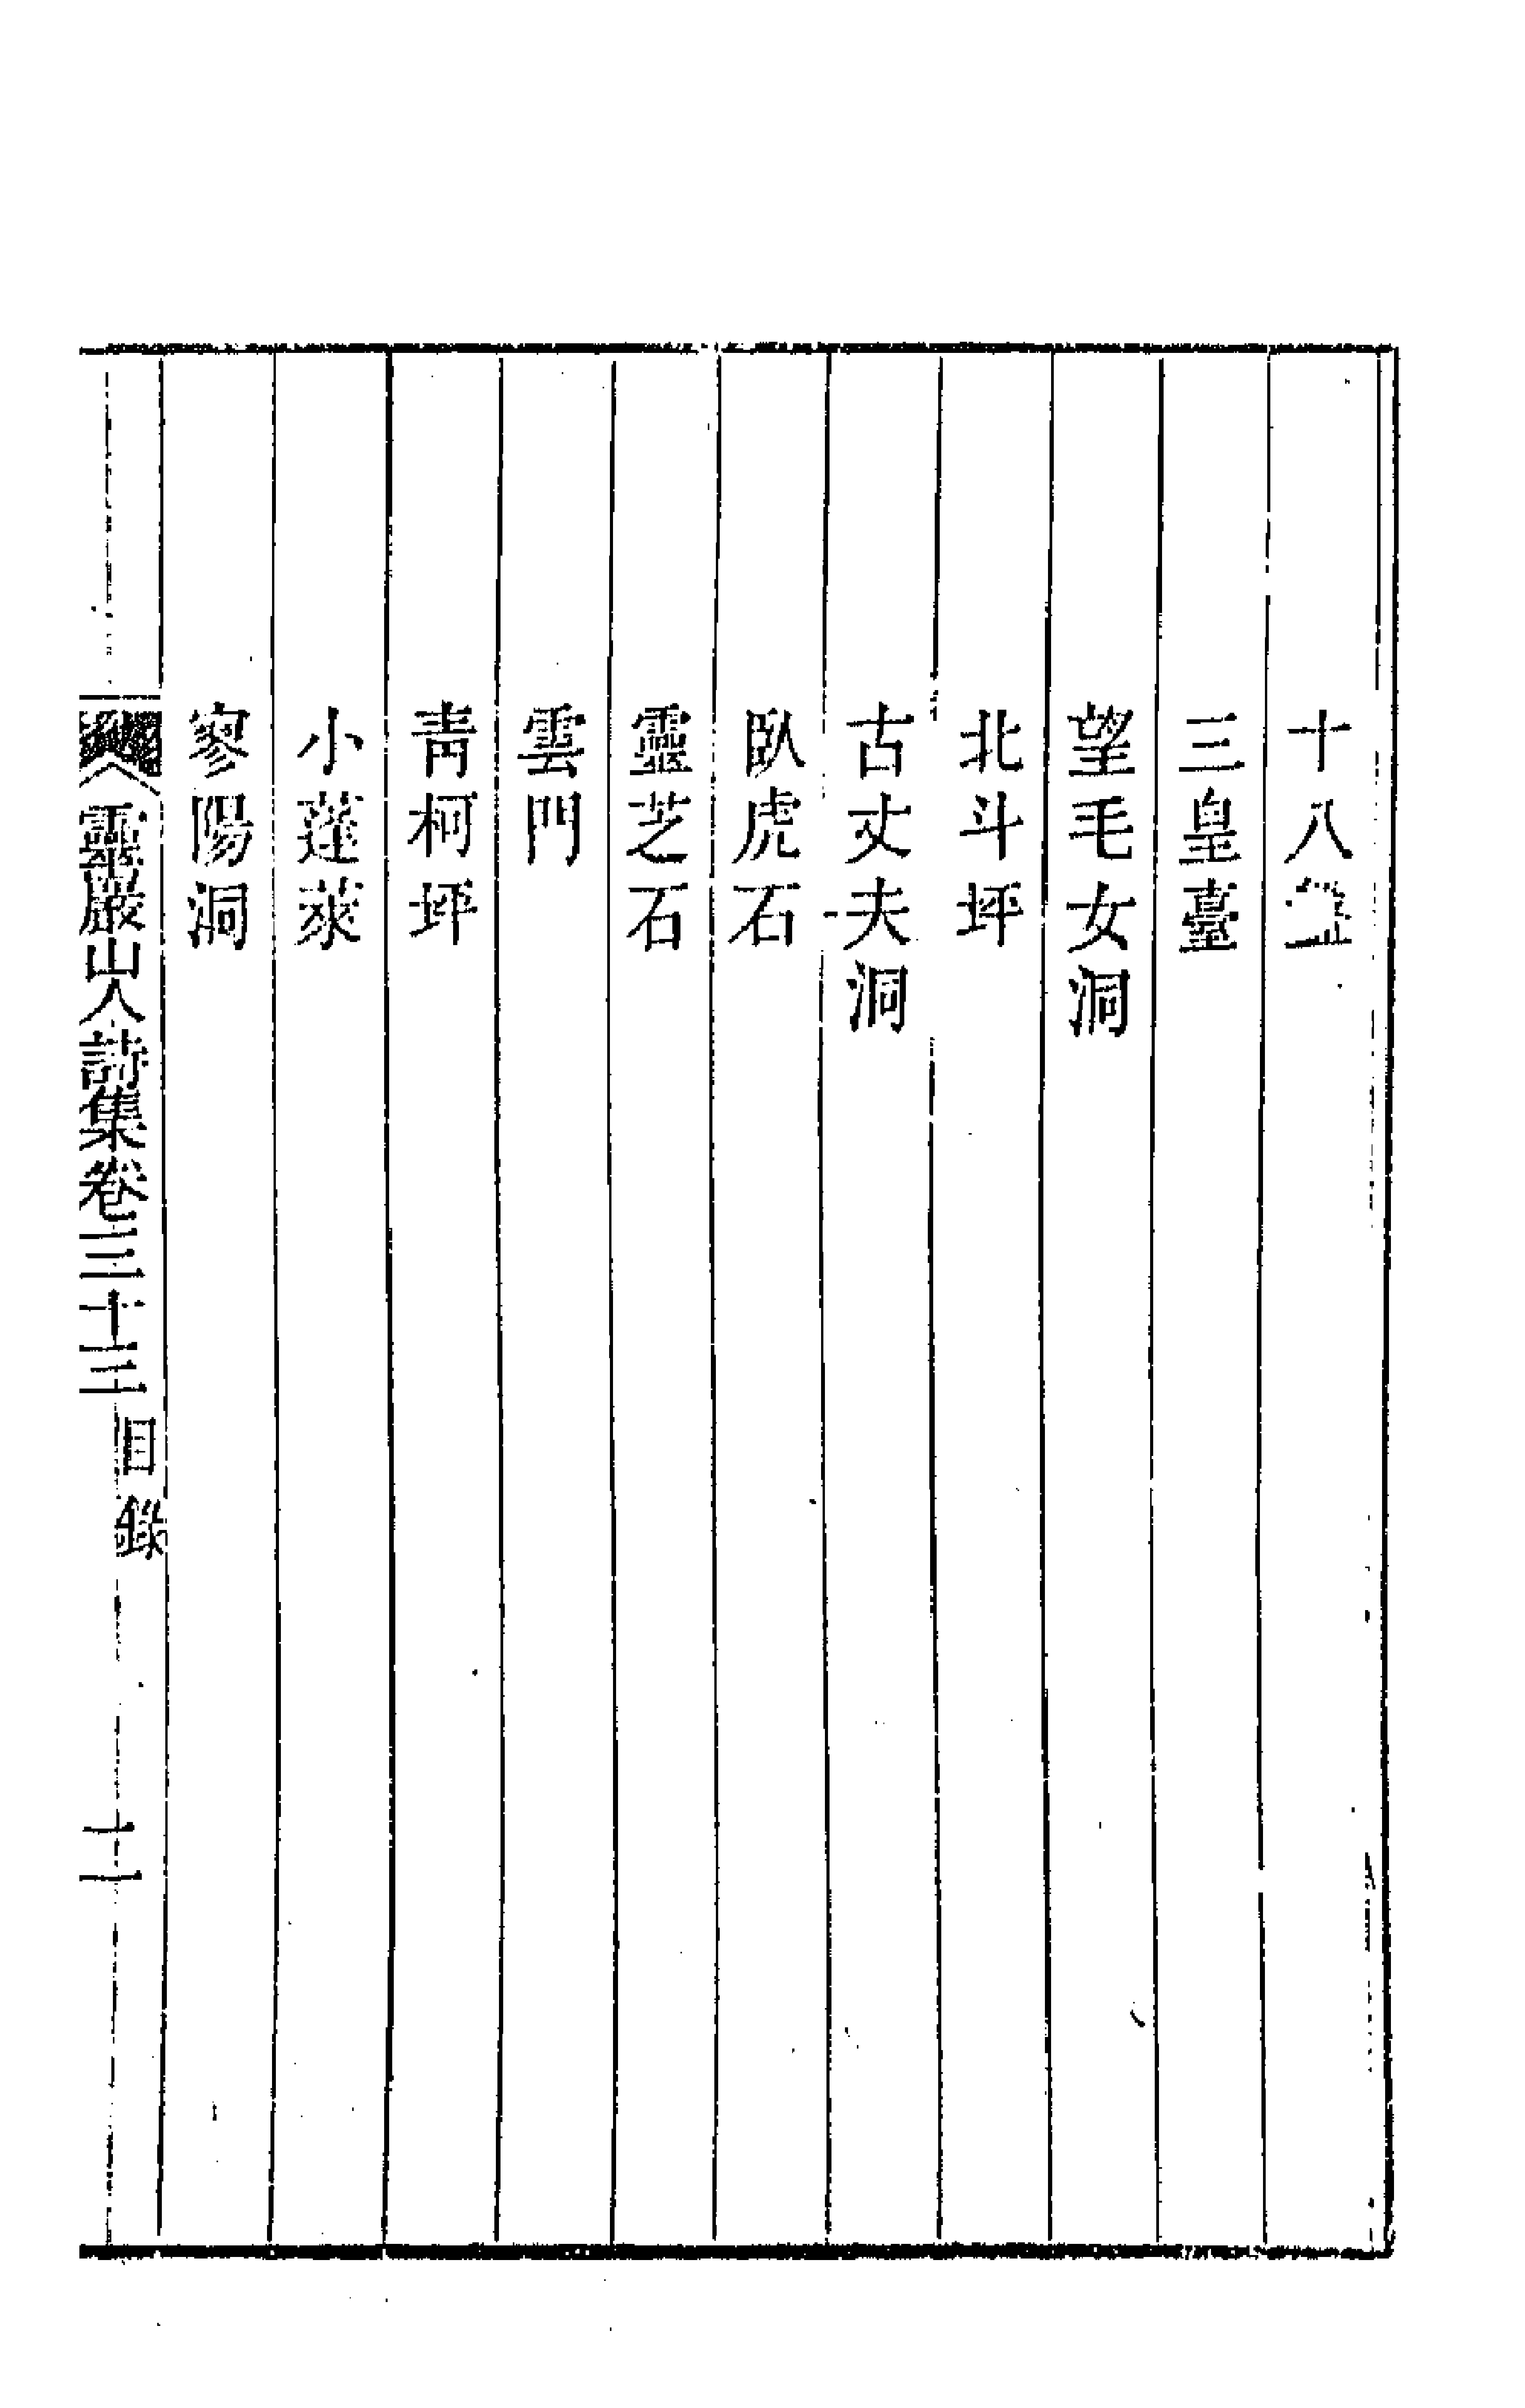 十八盤
三皇臺
望毛女洞
北斗坪
古丈夫洞
臥虎石
靈芝石
雲門
青柯坪
小蓬萊
寥陽洞
靈巖山人詩集卷三十三 目錄 二